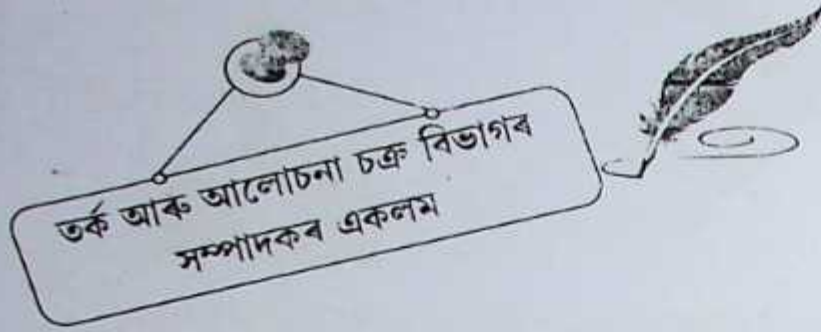 তৰ্ক আৰু আলোচনা চক্ৰ বিভাগৰ
সম্পাদকৰ একলম